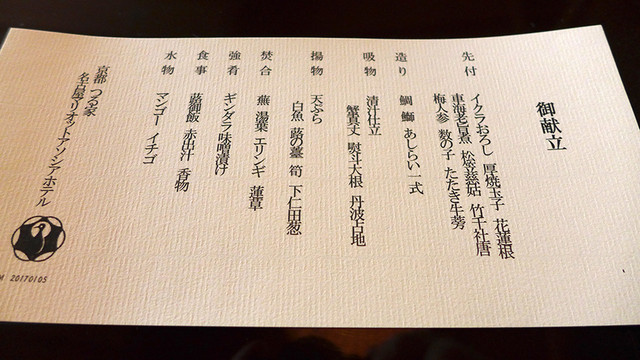 御献立
先付
イクラおろし 厚焼玉子 花蓮根
車海老旨煮 松笠慈姑 竹干社唐
梅人参 数の子 たたき牛蒡
造り
鯛 鰤 あしらい一式
吸物
清汁仕立
蟹真丈 熨斗大根 丹波占地
揚物
天ぷら
白魚 蕗の薹 筍 下仁田葱
焚合
蕪 湯葉 エリンギ 蓮草
強肴
ギンダラ味噌漬け
食事
蕗御飯 赤出汁 香物
水物
マンゴー イチゴ
京都 つる家
名古屋マリオットアソシアホテル
M 20170105